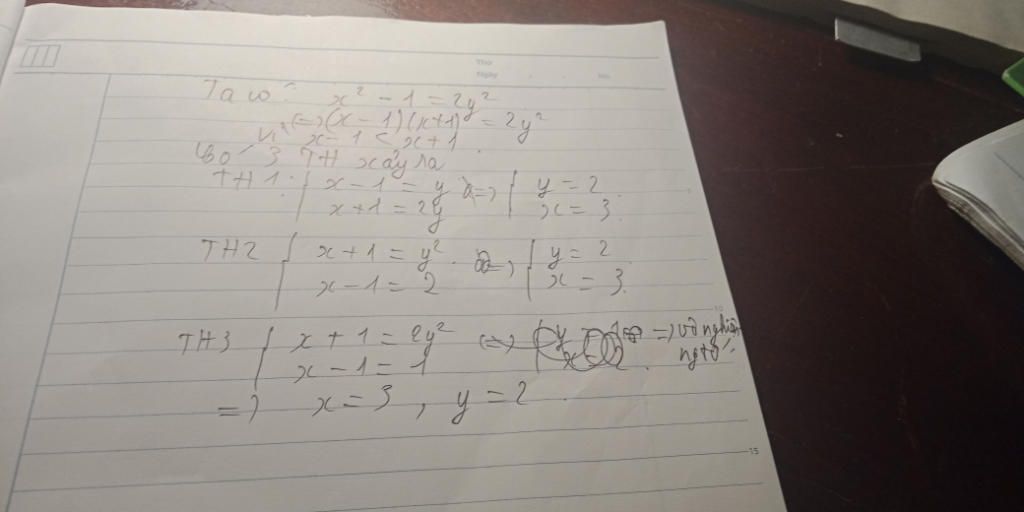 Thứ
Ngày . . No.
Ta có: x² - 1 = 2y²
(=) (x - 1)(x+1) = 2y²
Vì x - 1 < x + 1.
Có 3 TH xảy ra
TH1: { x - 1 = y x + 1 = 2y => { y = 2 x = 3.
TH2 { x + 1 = y² x - 1 = 2 => { y = 2 x = 3.
10
TH3 { x + 1 = 2y² x - 1 = 1 (=) => vô nghiệm ngtố
=) x = 3, y = 2.
15